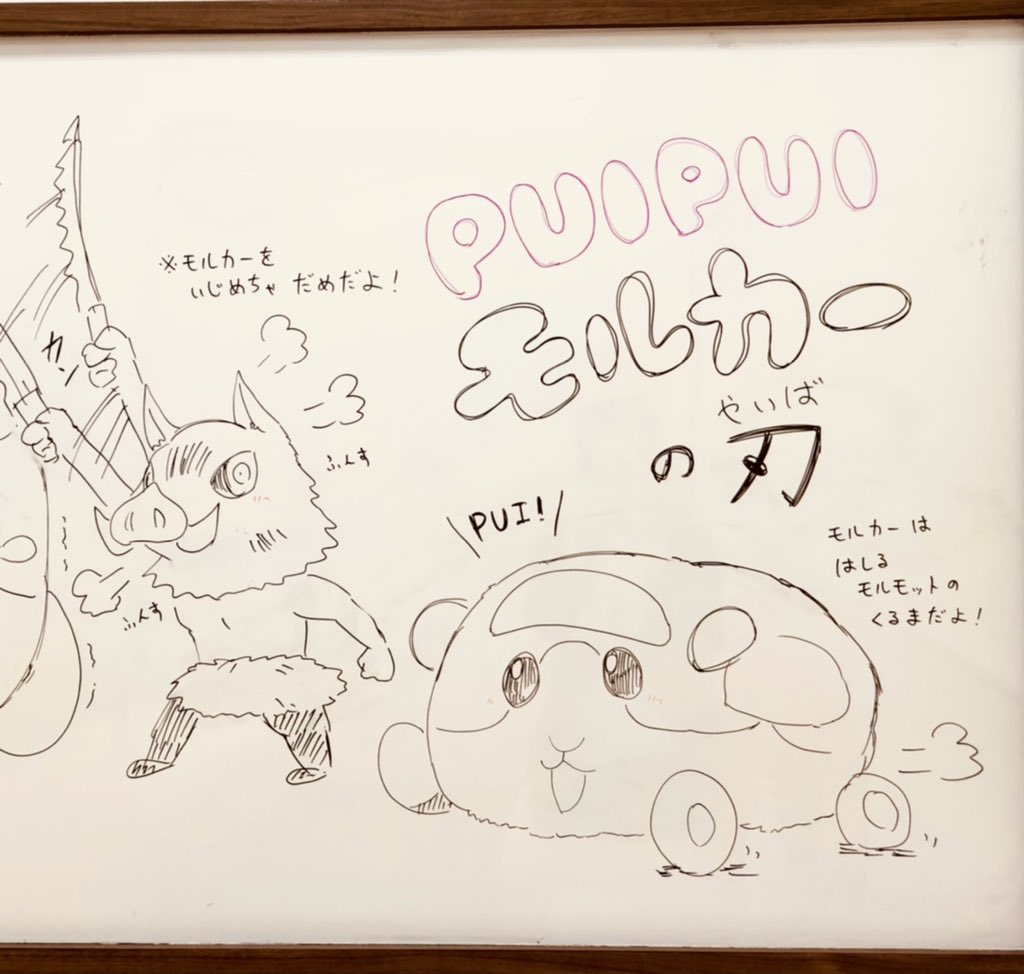 PUIPUI
モルカー
やいば
の刃
※モルカーを
いじめちゃ だめだよ!
カン
ふんす
ふんす
PUI!
モルカーは
はしる
モルモットの
くるまだよ!